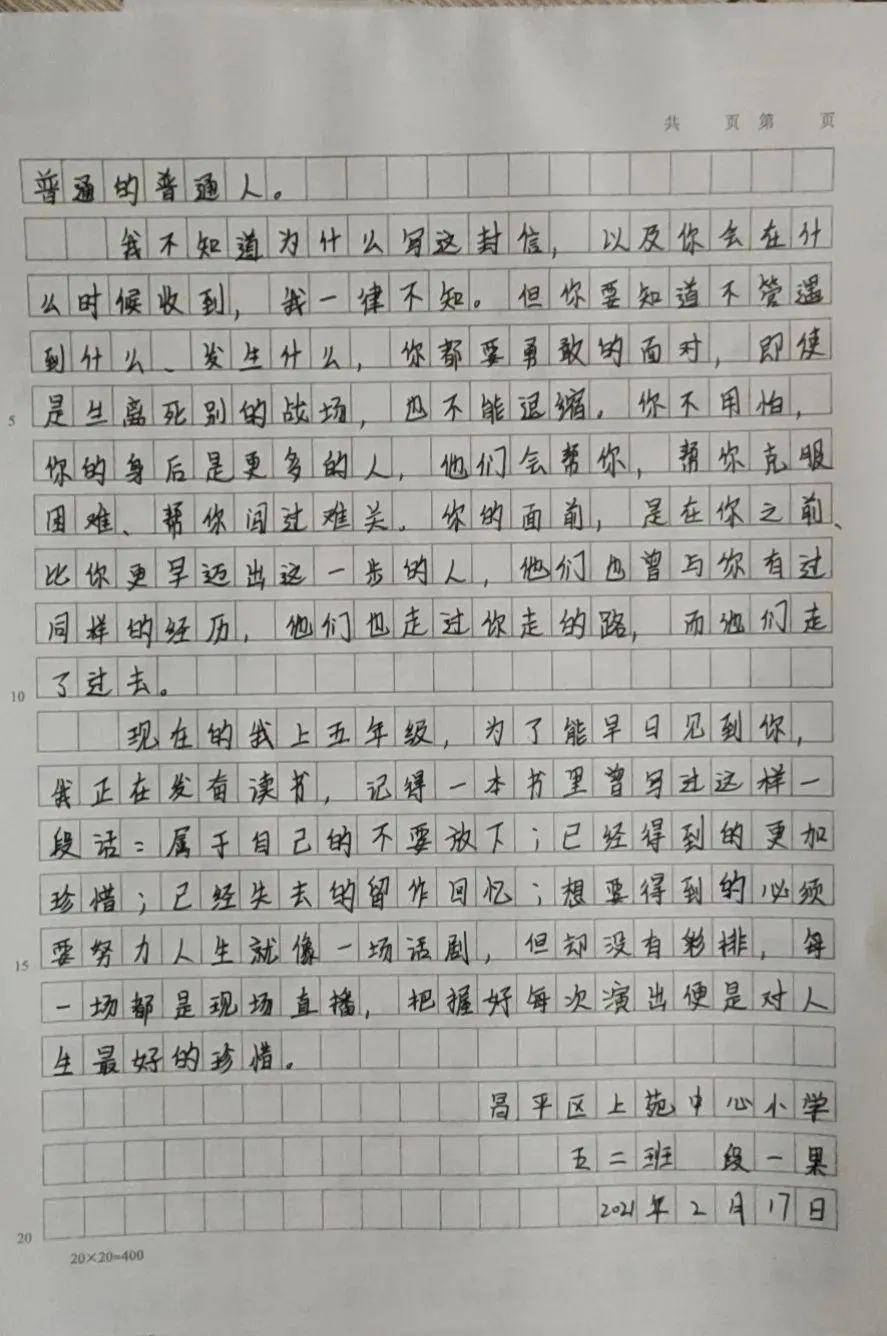 共 页 第 页
普通的普通人。
我不知道为什么写这封信，以及你会在什
么时候收到，我一律不知。但你要知道不管遇
到什么、发生什么，你都要勇敢的面对，即使
5 是生离死别的战场，也不能退缩。你不用怕，
你的身后是更多的人，他们会帮你，帮你克服
困难、帮你闯过难关。你的面前，是在你之前、
比你更早迈出这一步的人，他们也曾与你有过
同样的经历，他们也走过你走的路，而他们走
10 了过去。
现在的我上五年级，为了能早日见到你，
我正在发奋读书，记得一本书里曾写过这样一
段话：属于自己的不要放下；已经得到的更加
珍惜；已经失去的留作回忆；想要得到的必须
15 要努力人生就像一场话剧，但却没有彩排，每
一场都是现场直播，把握好每次演出便是对人
生最好的珍惜。
昌平区上苑中心小学
五二班 段一果
20 2021年2月17日
20×20=400